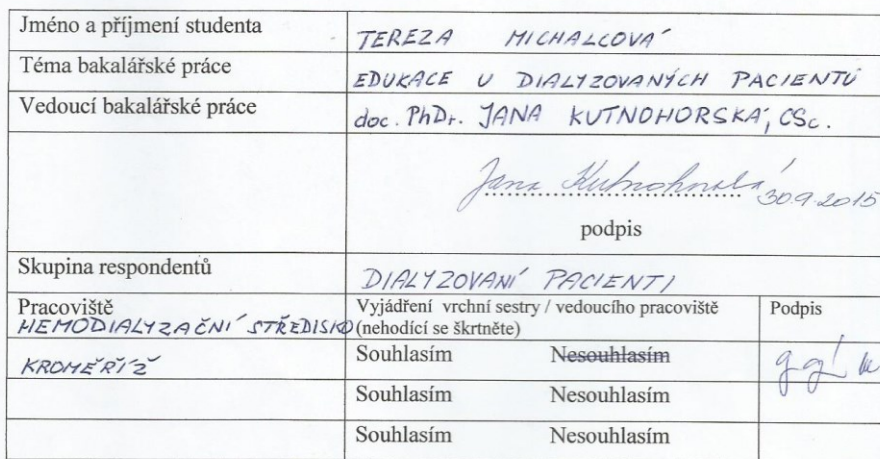 Jméno a příjmení studenta TEREZA MICHALCOVÁ
Téma bakalářské práce EDUKACE U DIALYZOVANÝCH PACIENTŮ
Vedoucí bakalářské práce doc. PhDr. JANA KUTNOHORSKÁ, CSc.
Jana Kutnohorská 30.9.2015
podpis
Skupina respondentů DIALYZOVANÍ PACIENTI
Pracoviště Vyjádření vrchní sestry / vedoucího pracoviště Podpis
HEMODIALYZAČNÍ STŘEDISKO (nehodící se škrtněte)
KROMĚŘÍŽ Souhlasím Nesouhlasím
Souhlasím Nesouhlasím
Souhlasím Nesouhlasím